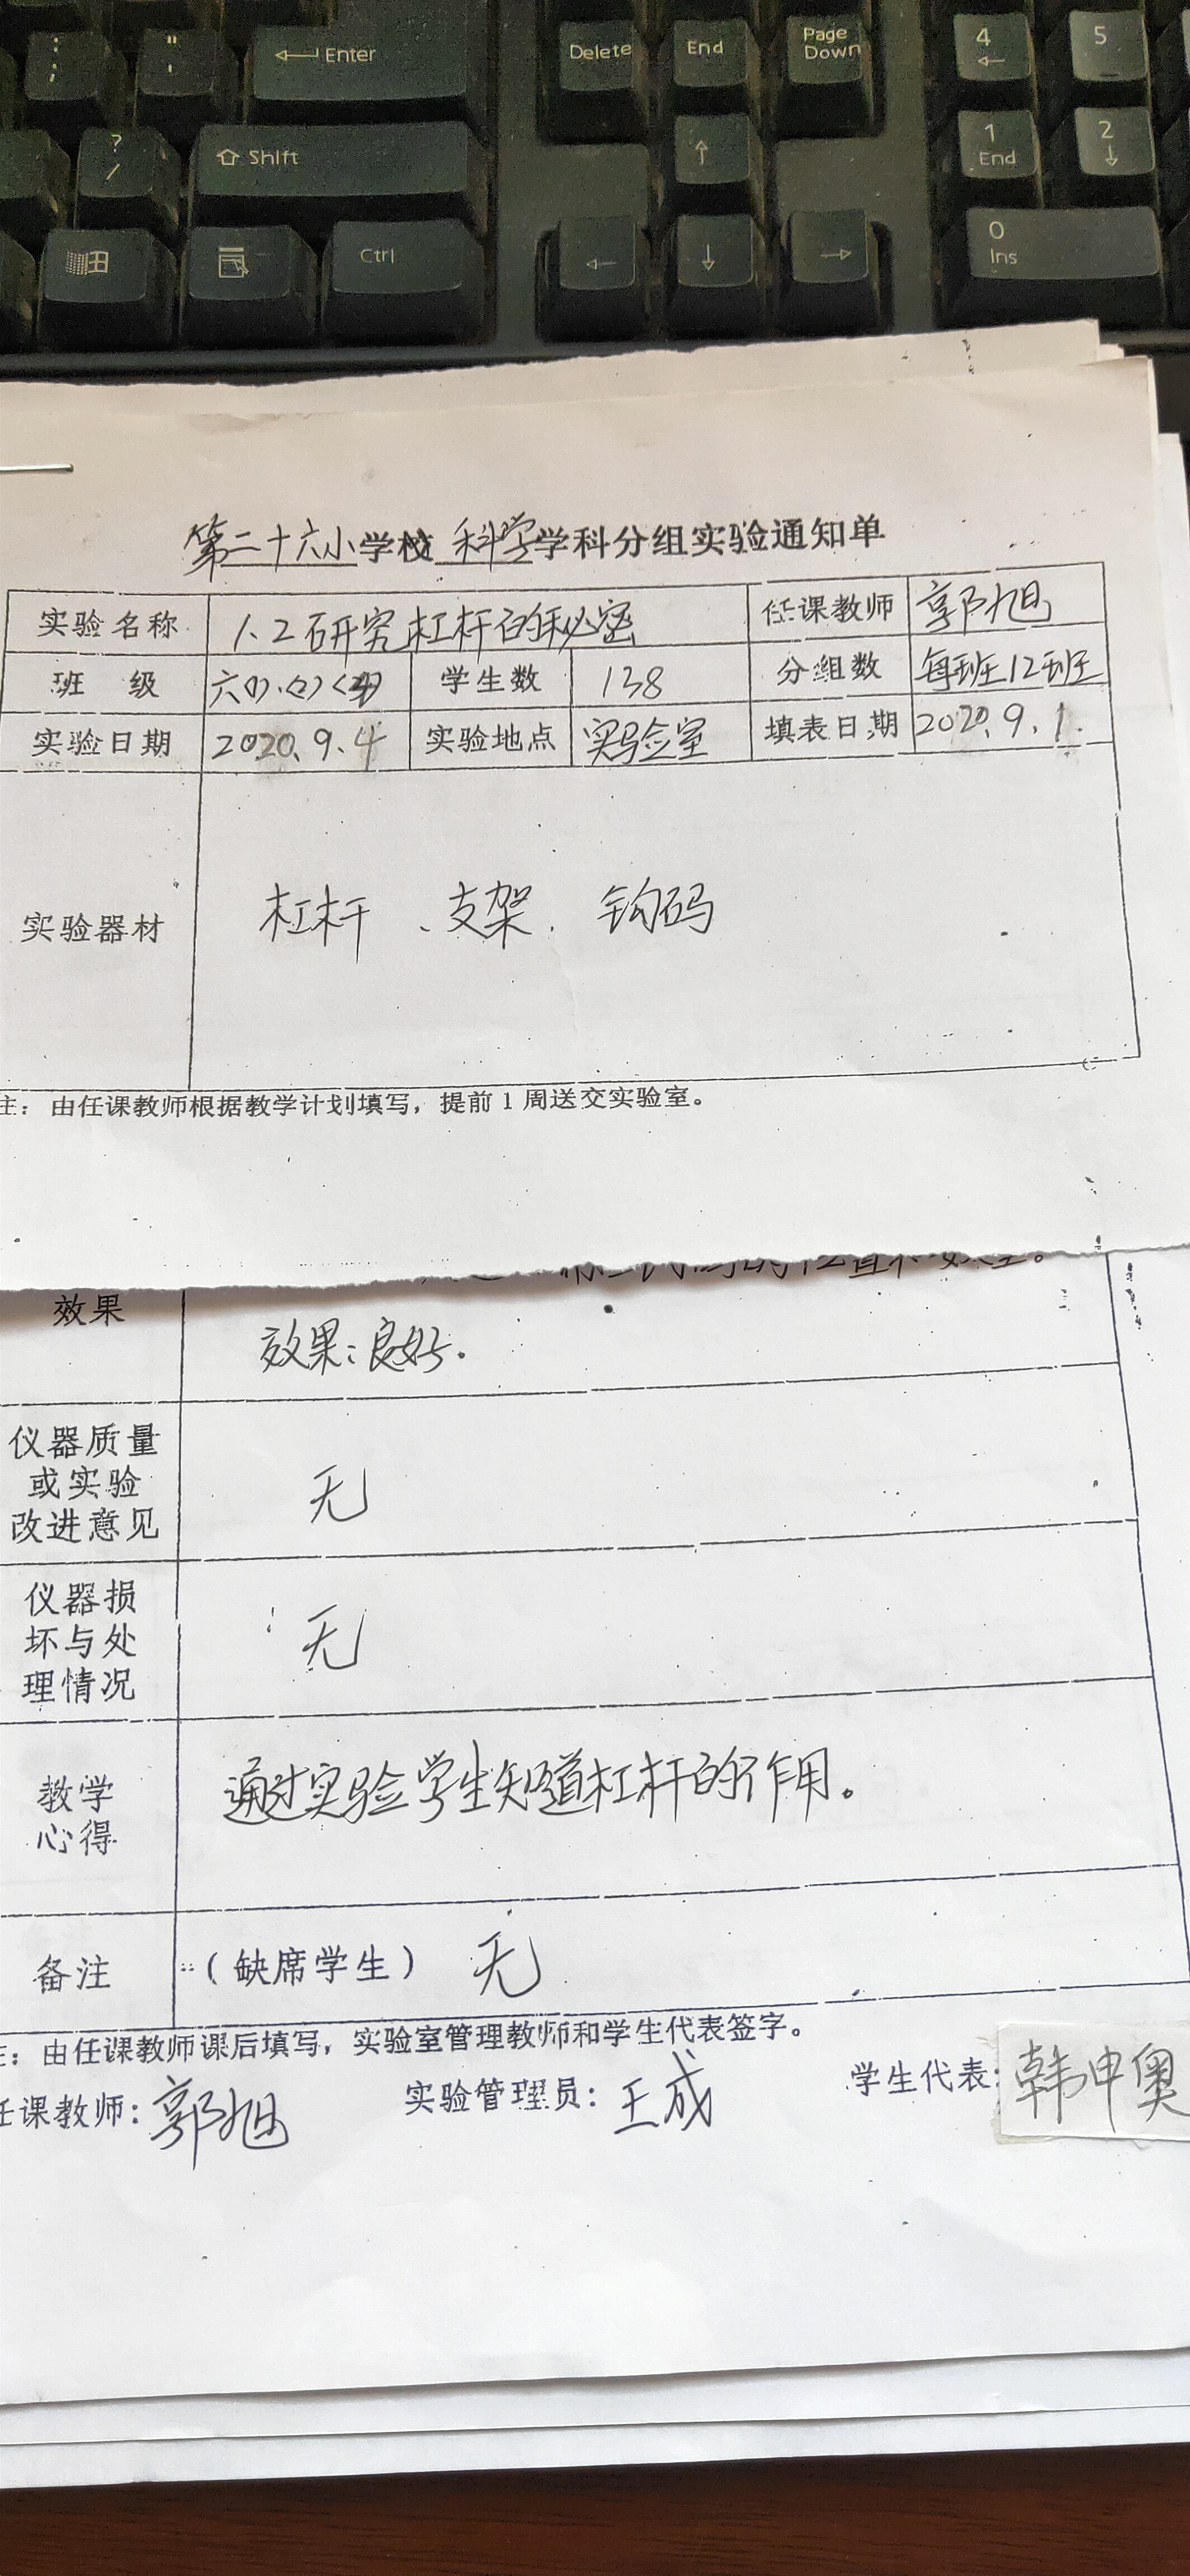 ; " ← Enter Delete End Page Down 4 5
: '
? / Shift ↑ 1 End 2
Ctrl ← ↓ → 0 Ins
第二十六小学校 科学学科分组实验通知单
实验名称 1.2研究杠杆的秘密 任课教师 郭旭
班 级 六(1).(2) 学生数 138 分组数 每班12班
实验日期 2020.9.4 实验地点 实验室 填表日期 2020.9.1.
实验器材 杠杆、支架. 钩码
注：由任课教师根据教学计划填写，提前1周送交实验室。
效果 效果：良好.
仪器质量
或实验 无
改进意见
仪器损
坏与处 无
理情况
教学
心得 通过实验学生知道杠杆的作用。
备注 （缺席学生） 无
注：由任课教师课后填写，实验室管理教师和学生代表签字。
任课教师：郭旭 实验管理员：王成 学生代表：韩申奥